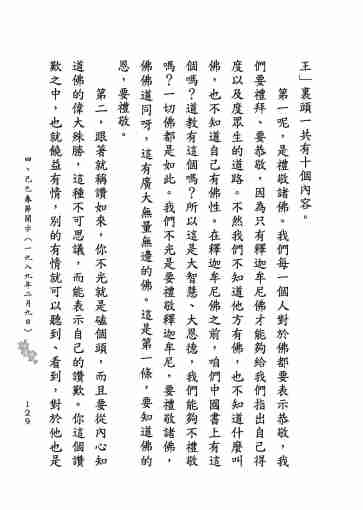 王」裏頭一共有十個內容。
第一呢，是禮敬諸佛。我們每一個人對於佛都要表示恭敬，我
們要禮拜、要恭敬，因為只有釋迦牟尼佛才能夠給我們指出自己得
度以及度眾生的道路。不然我們不知道他方有佛，也不知道什麼叫
佛，也不知道自己有佛性。在釋迦牟尼佛之前，咱們中國書上有這
個嗎？道教有這個嗎？所以這是大智慧、大恩德，我們能夠不禮敬
嗎？一切佛都是如此。我們不光是要禮敬釋迦牟尼，要禮敬諸佛，
佛佛道同呀，這有廣大無量無邊的佛。這是第一條，要知道佛的
恩，要禮敬。
第二，跟著就稱讚如來，你不光就是磕個頭，而且要從內心知
道佛的偉大殊勝，這種不可思議，而能表示自己的讚歎。你這個讚
歎之中，也就饒益有情，別的有情就可以聽到、看到，對於他也是
四、九〇春節開示（一九八九年二月九日）
129